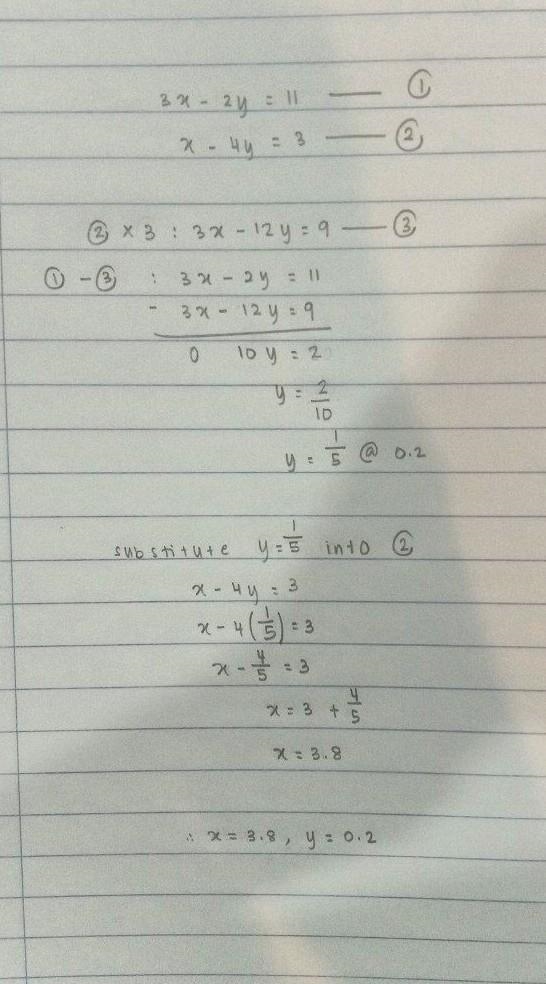 3x - 2y = 11 —— ①
x - 4y = 3 —— ②
② × 3 : 3x - 12y = 9 —— ③
① - ③ : 3x - 2y = 11
- 3x - 12y = 9
0 10y = 2
y = 2/10
y = 1/5 @ 0.2
substitute y = 1/5 into ②
x - 4y = 3
x - 4(1/5) = 3
x - 4/5 = 3
x = 3 + 4/5
x = 3.8
∴ x = 3.8, y = 0.2